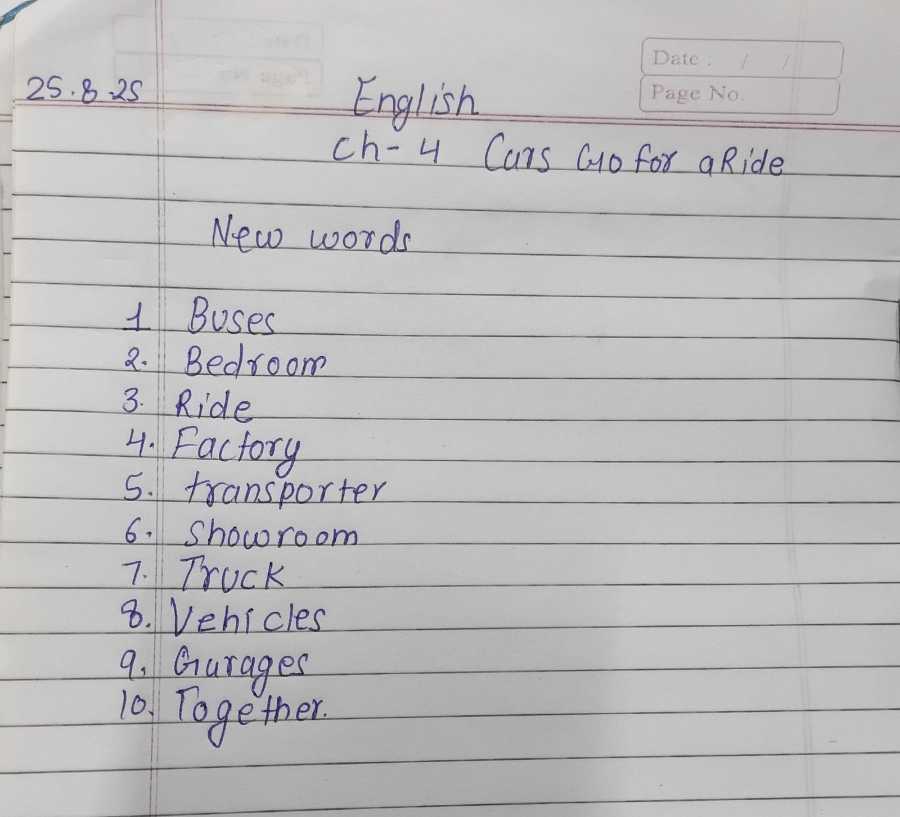 Date : / /
Page No.
25.8.25
English
Ch-4 Cars Go for a Ride
New words
1 Buses
2. Bedroom
3. Ride
4. Factory
5. transporter
6. Showroom
7. Truck
8. Vehicles
9. Garages
10. Together.